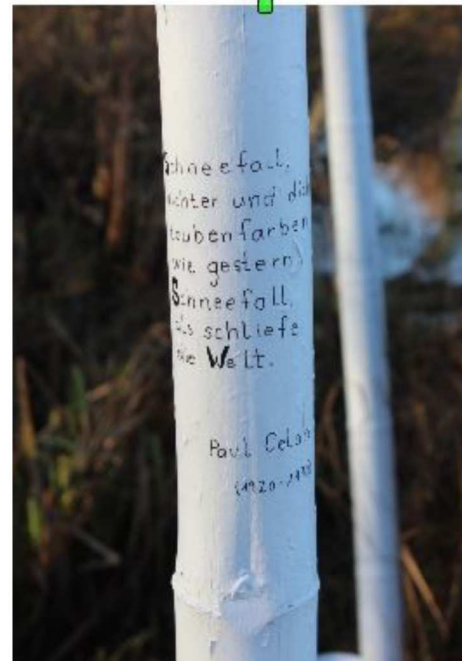 Schneefall,
ichter und dich
taubenfarben
wie gestern,
Schneefall,
als schliefe
die Welt.
Paul Celan
(1920-